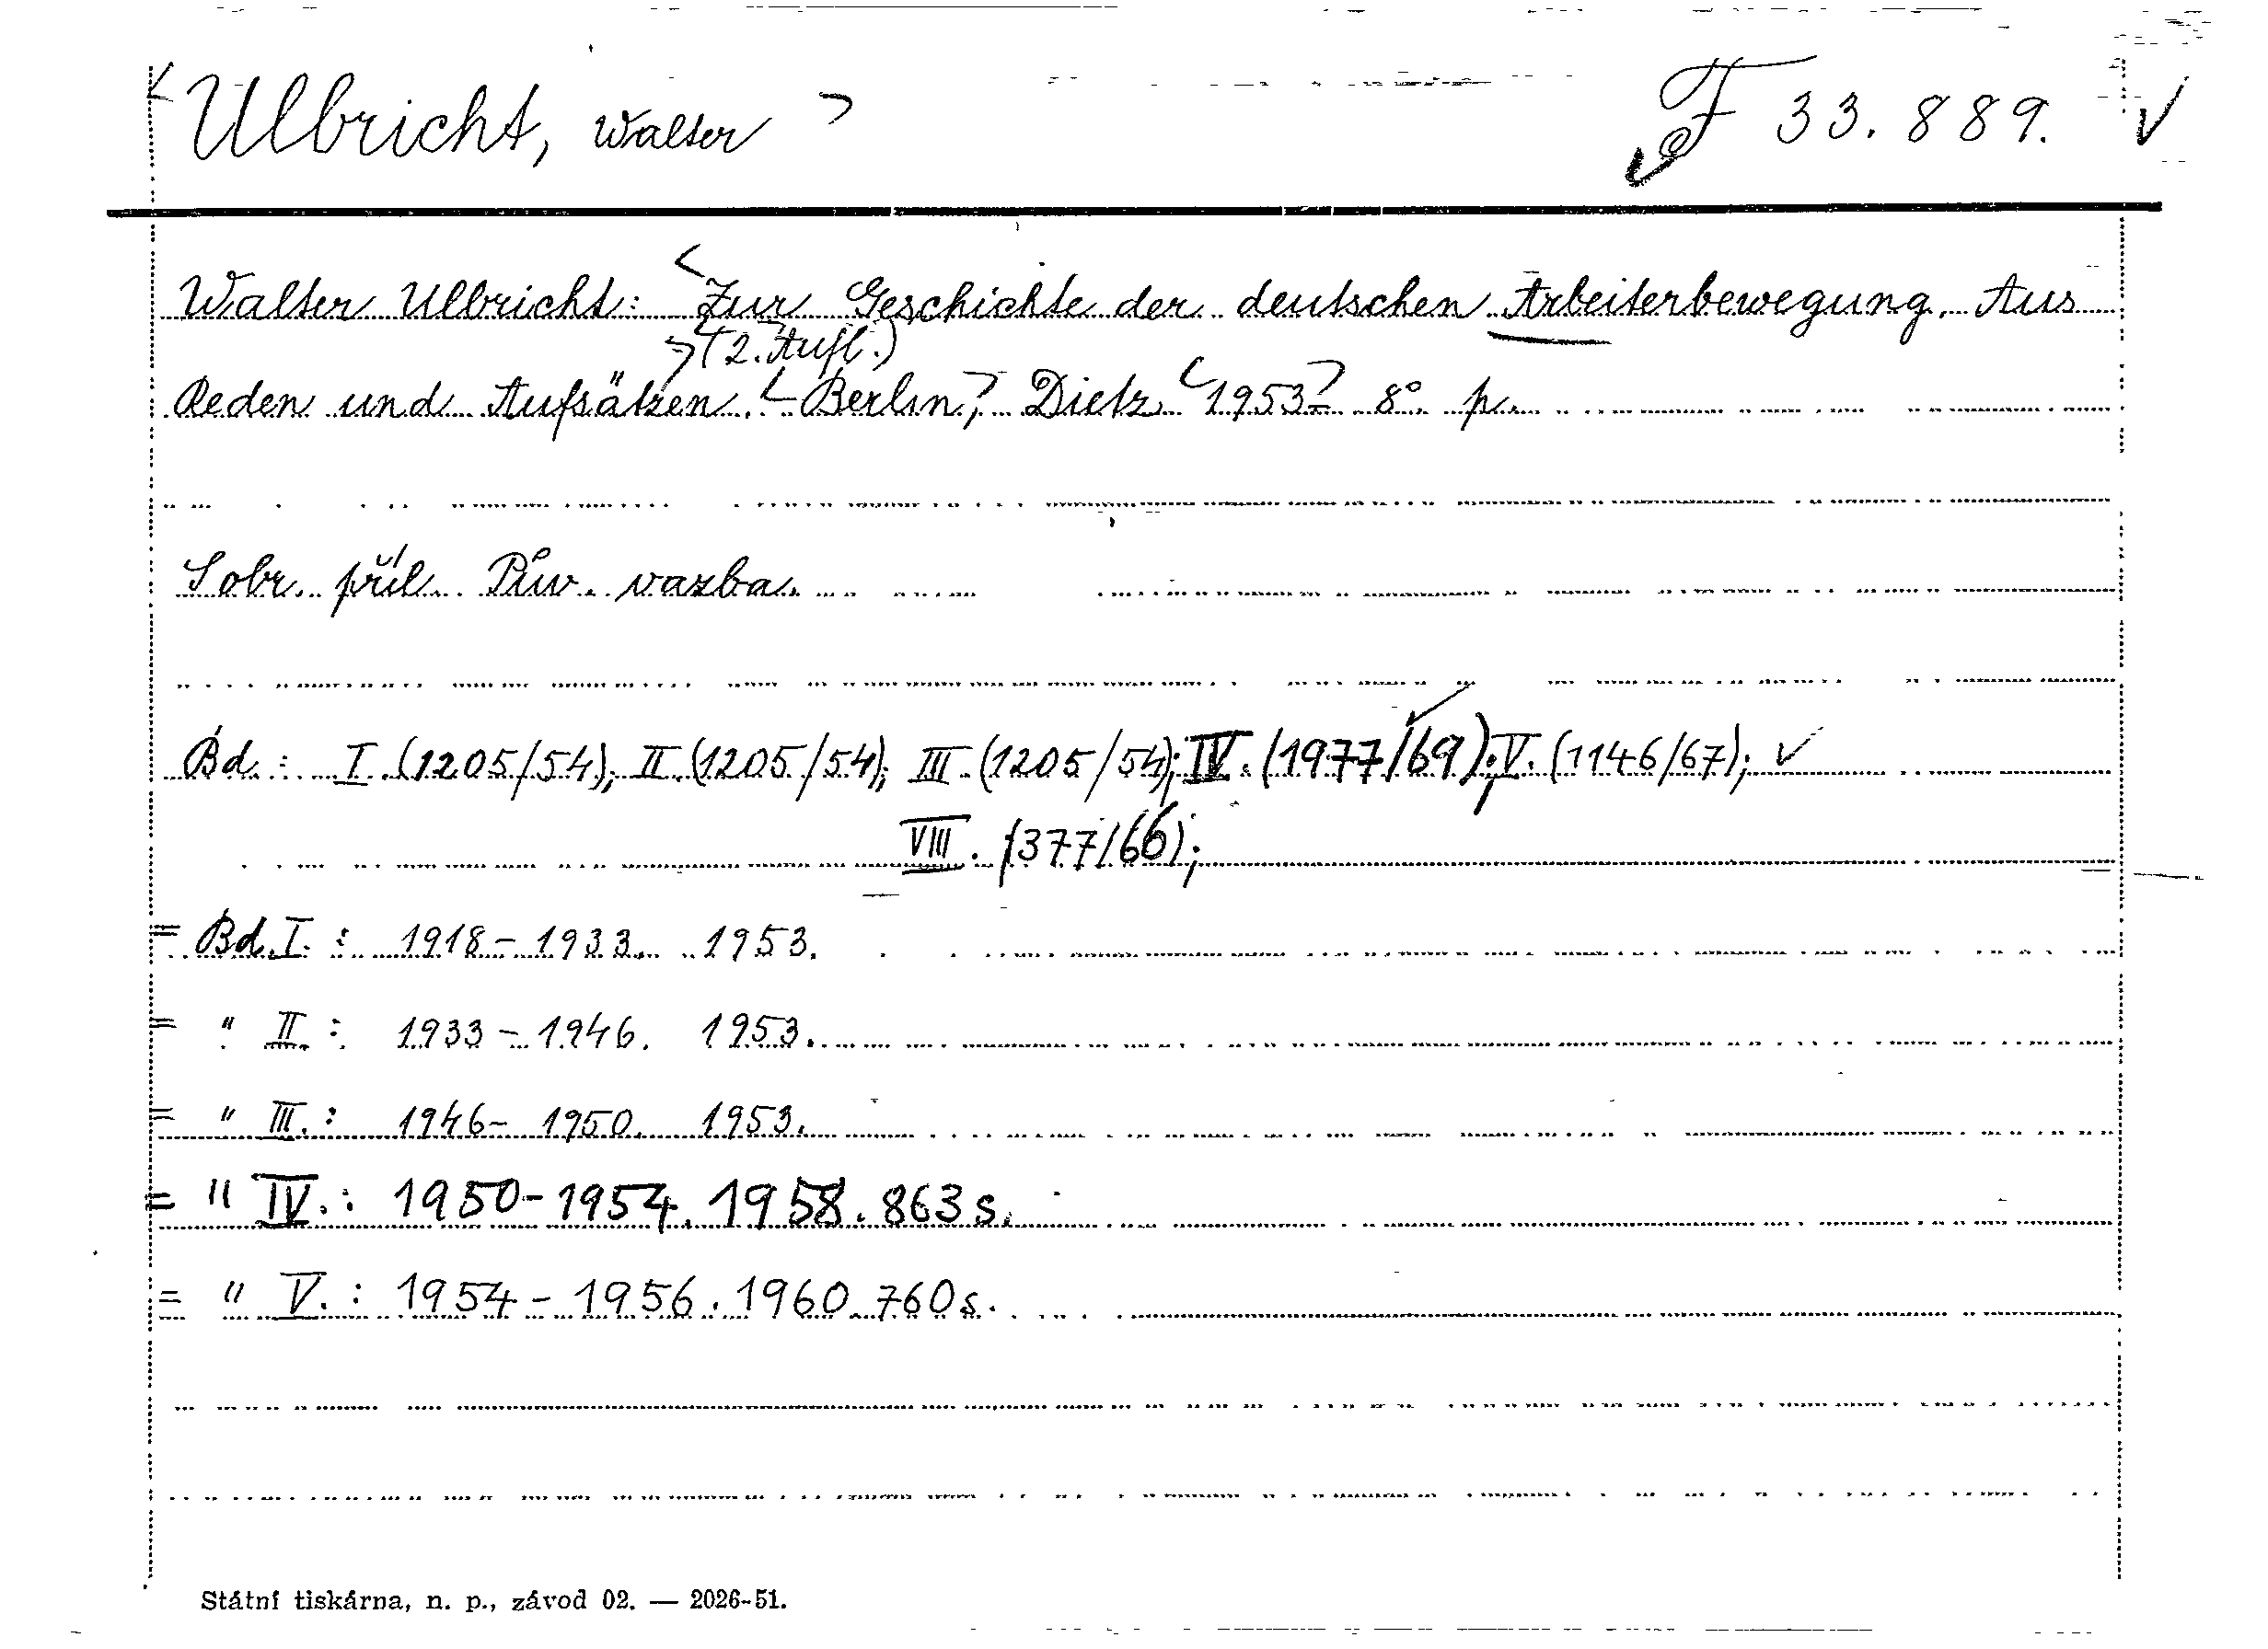 Ulbricht, Walter F 33.889.
Walter Ulbricht: Zur Geschichte der deutschen Arbeiterbewegung. Aus
(2. Aufl.)
Reden und Aufsätzen. Berlin, Dietz 1953 8° p.
S obr. příl. Pův. vazba.
Bd.: I. (1205/54); II. (1205/54); III. (1205/54); IV. (1977/69); V. (1146/67);
VIII. (377/66);
= Bd. I. : 1918-1933. 1953.
= " II. : 1933-1946. 1953.
= " III. : 1946-1950. 1953.
= " IV. : 1950-1954. 1958. 863 s.
= " V. : 1954-1956. 1960. 760 s.
Státní tiskárna, n. p., závod 02. — 2026-51.